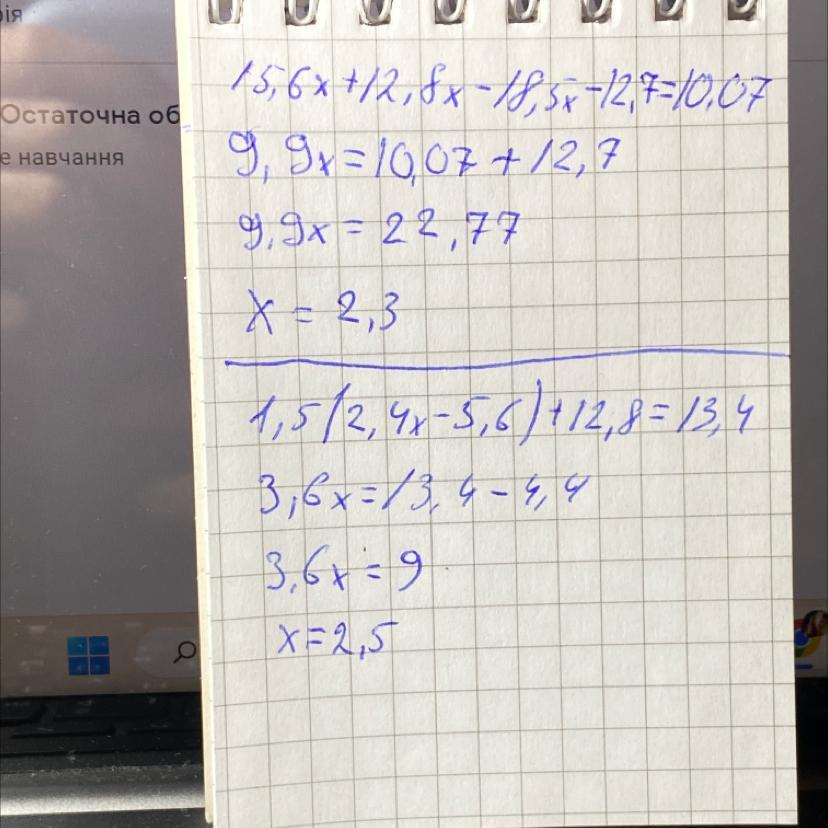 ія
Остаточна об
е навчання
15,6x+12,8x-18,5x-12,7=10,07
9,9x=10,07+12,7
9,9x=22,77
x=2,3
1,5(2,4x-5,6)+12,8=13,4
3,6x=13,4-4,4
3,6x=9
x=2,5